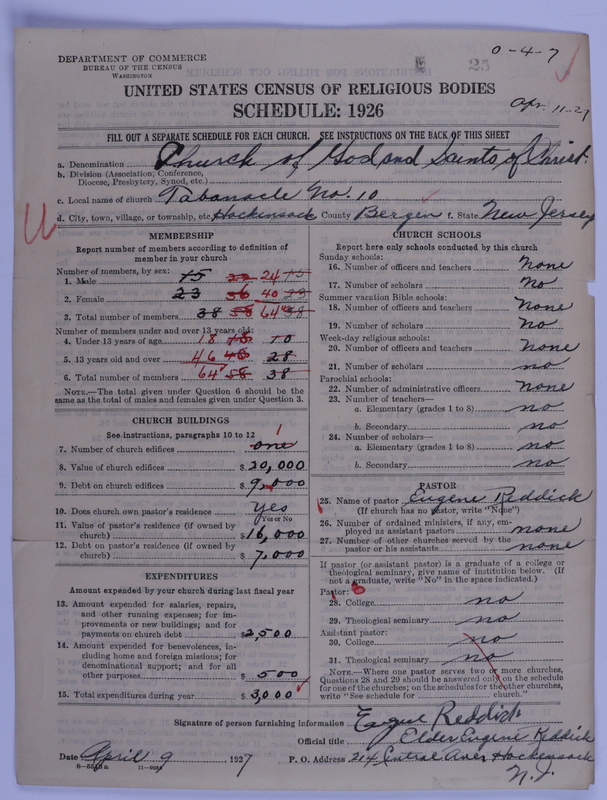 DEPARTMENT OF COMMERCE
BUREAU OF THE CENSUS
WASHINGTON
25
0-4-7
UNITED STATES CENSUS OF RELIGIOUS BODIES
SCHEDULE: 1926
Apr. 11-27
FILL OUT A SEPARATE SCHEDULE FOR EACH CHURCH. SEE INSTRUCTIONS ON THE BACK OF THIS SHEET
a. Denomination Church of God and Saints of Christ.
b. Division (Association, Conference,
Diocese, Presbytery, Synod, etc.)
c. Local name of church Tabanacle No. 10
d. City, town, village, or township, etc. Hackensack County Bergen f. State New Jersey
MEMBERSHIP
Report number of members according to definition of
member in your church
Number of members, by sex:
1. Male 15 22 24 15
2. Female 23 36 40 23
3. Total number of members 38 58 64 38
Number of members under and over 13 years old:
4. Under 13 years of age 18 10
5. 13 years old and over 46 28
6. Total number of members 64 58 38
NOTE.—The total given under Question 6 should be the
same as the total of males and females given under Question 3.
CHURCH BUILDINGS
See instructions, paragraphs 10 to 12
7. Number of church edifices one 1
8. Value of church edifices $20,000
9. Debt on church edifices $9,000
10. Does church own pastor's residence yes
Yes or No
11. Value of pastor's residence (if owned by
church) $16,000
12. Debt on pastor's residence (if owned by
church) $7,000
EXPENDITURES
Amount expended by your church during last fiscal year
13. Amount expended for salaries, repairs,
and other running expenses; for im-
provements or new buildings; and for
payments on church debt $2,500
14. Amount expended for benevolences, in-
cluding home and foreign missions; for
denominational support; and for all
other purposes $500
15. Total expenditures during year $3,000
CHURCH SCHOOLS
Report here only schools conducted by this church
Sunday schools:
16. Number of officers and teachers none
17. Number of scholars No
Summer vacation Bible schools:
18. Number of officers and teachers None
19. Number of scholars no
Week-day religious schools:
20. Number of officers and teachers none
21. Number of scholars no
Parochial schools:
22. Number of administrative officers none
23. Number of teachers—
a. Elementary (grades 1 to 8) no
b. Secondary no
24. Number of scholars—
a. Elementary (grades 1 to 8) no
b. Secondary no
PASTOR
25. Name of pastor Eugene Reddick
(If church has no pastor, write "None")
26. Number of ordained ministers, if any, em-
ployed as assistant pastors none
27. Number of other churches served by the
pastor or his assistants none
If pastor (or assistant pastor) is a graduate of a college or
theological seminary, give name of institution below. (If
not a graduate, write "No" in the space indicated.)
Pastor:
28. College no
29. Theological seminary no
Assistant pastor:
30. College no
31. Theological seminary no
NOTE.—Where one pastor serves two or more churches,
Questions 28 and 29 should be answered only on the schedule
for one of the churches; on the schedules for the other churches,
write "See schedule for church."
Signature of person furnishing information Eugene Reddick
Official title Elder Eugene Reddick
Date April 9, 1927 P. O. Address 214 Central Aver Hackensack
N.J.